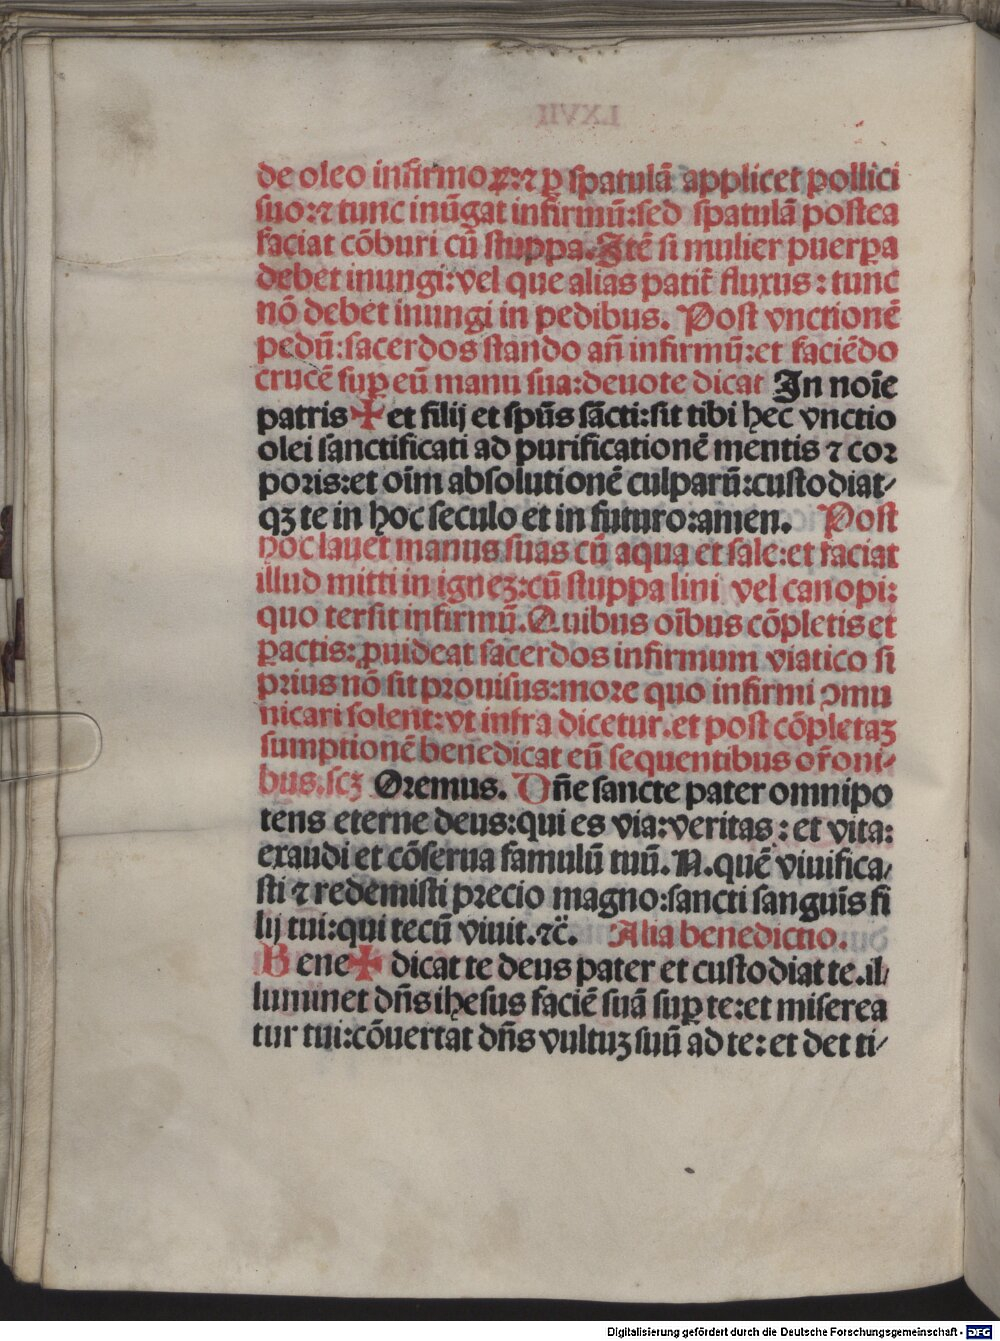 de oleo infirmoꝝ:⁊ ꝑ spatulā applicet pollici
suo:⁊ tunc inūgat infirmū:sed spatulā postea
faciat cōburi cū stuppa. Itē si mulier puerꝑa
debet inungi:vel que alias patit᷑ fluxus: tunc
nō debet inungi in pedibus. Post vnctionē
pedū:sacerdos stando añ infirmū:et faciēdo
crucē suꝑ eū manu sua:deuote dicat In noīe
patris ✠ et filij et spūs sācti:sit tibi hec vnctio
olei sanctificati ad purificationē mentis ⁊ cor
poris:et oīm absolutionē culparū:custodiat/
qꝫ te in hoc seculo et in futuro:amen. Post
hoc lauet manus suas cū aqua et sale:et faciat
illud mitti in igneꝫ:cū stuppa lini vel canopi:
quo tersit infirmū. Quibus oībus cōpletis et
ꝑactis:ꝓuideat sacerdos infirmum viatico si
prius nō sit prouisus:more quo infirmi ꝯmu
nicari solent:vt infra dicetur.et post cōpletaꝫ
sumptionē benedicat eū sequentibus or̄oni/
bus.scꝫ Oremus. Dñe sancte pater omnipo
tens eterne deus:qui es via:veritas: et vita:
exaudi et cōserua famulū tuū. N. quē viuifica/
sti ⁊ redemisti precio magno:sancti sanguīs fi
lij tui:qui tecū viuit.⁊c̄. Alia benedictio.
Bene✠ dicat te deus pater et custodiat te.il/
luminet dñs ihesus faciē suā suꝑ te:et miserea
tur tui:cōuertat dñs vultuꝫ suū ad te: et det ti/
Digitalisierung gefördert durch die Deutsche Forschungsgemeinschaft - DFG